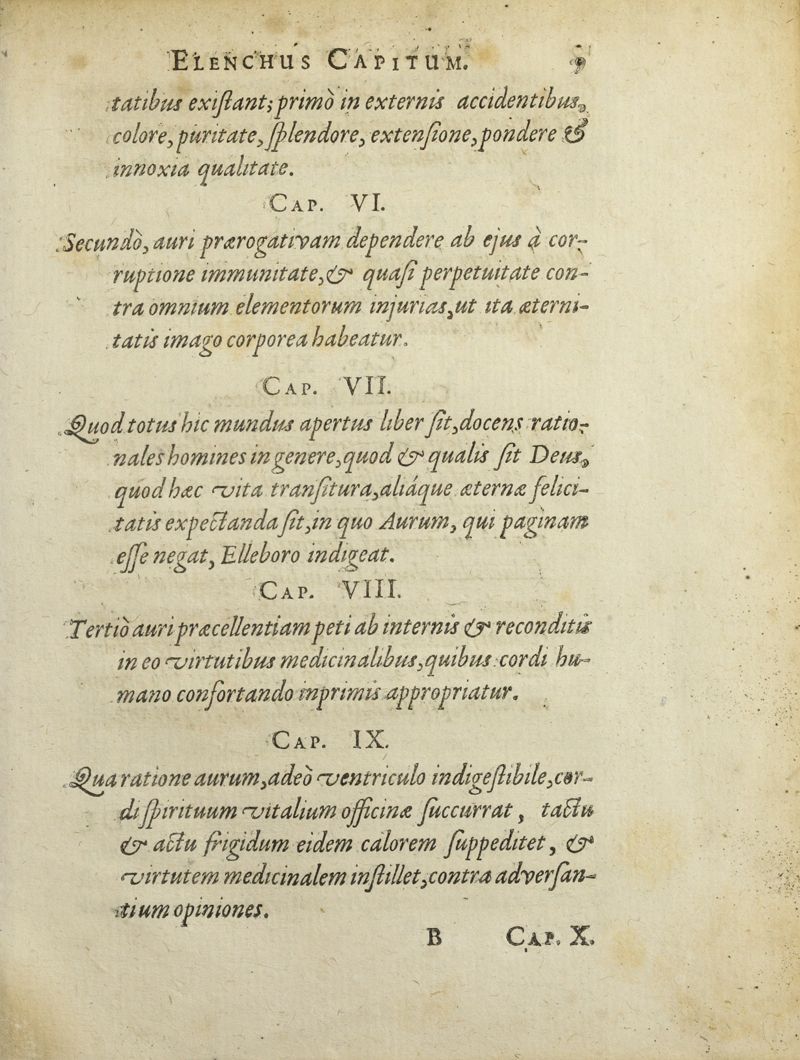 ELENCHUS CAPITUM. 9
tatibus exiſtant; primò in externis accidentibus,
colore, puritate, ſplendore, extenſione, pondere &
innoxia qualitate.
CAP. VI.
Secundò, auri prærogativam dependere ab ejus à cor-
ruptione immunitate, & quaſi perpetuitate con-
tra omnium elementorum injurias, ut ita æterni-
tatis imago corporea habeatur.
CAP. VII.
Quod totus hic mundus apertus liber ſit, docens ratio-
nales homines in genere, quod & qualis ſit Deus,
quod hæc vita tranſitura, aliáque æternæ felici-
tatis expectanda ſit, in quo Aurum, qui paginam
eſſe negat, Elleboro indigeat.
CAP. VIII.
Tertiò auri præcellentiam peti ab internis & reconditis
in eo virtutibus medicinalibus, quibus cordi hu-
mano confortando inprimis appropriatur.
CAP. IX.
Qua ratione aurum, adeò ventriculo indigeſtibile, cor-
di ſpirituum vitalium officinæ ſuccurrat, tactu
& actu frigidum eidem calorem ſuppeditet, &
virtutem medicinalem inſtillet, contra adverſan-
tium opiniones.
B CAP. X.